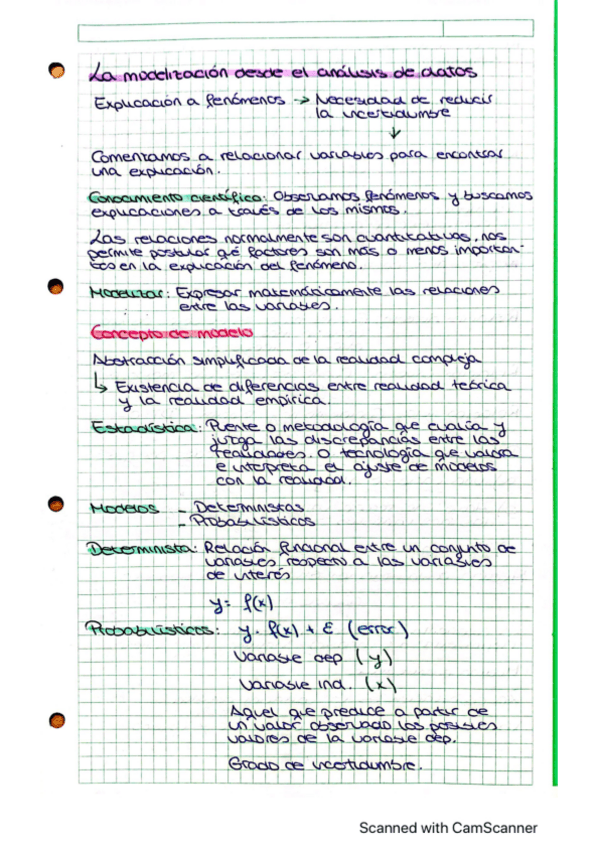 La modelización desde el análisis de datos
Explicación a fenómenos → Necesidad de reducir
la incertidumbre
↓
Comenzamos a relacionar variables para encontrar
una explicación.
Conocimiento científico: Observamos fenómenos y buscamos
explicaciones a través de los mismos.
Las relaciones normalmente son cuantitativas, nos
permite postular qé factores son más o menos importan-
tes en la explicación del fenómeno.
Modelizar: Expresar matemáticamente las relaciones
entre las variables.
Concepto de modelo
Abstracción simplificada de la realidad compleja
↳ Existencia de diferencias entre realidad teórica
y la realidad empírica.
Estadística: Puente o metodología que evalúa y
juzga las discrepancias entre las
realidades. O tecnología que valora
e interpreta el ajuste de modelos
con la realidad.
Modelos - Deterministas
- Probabilísticos
Determinista: Relación funcional entre un conjunto de
variables respecto a las variables
de interés
y = f(x)
Probabilísticos: y = f(x) + ε (error)
Variable dep (y)
Variable ind. (x)
Aquel que predice a partir de
un valor observado los posibles
valores de la variable dep.
Grado de incertidumbre.
Scanned with CamScanner